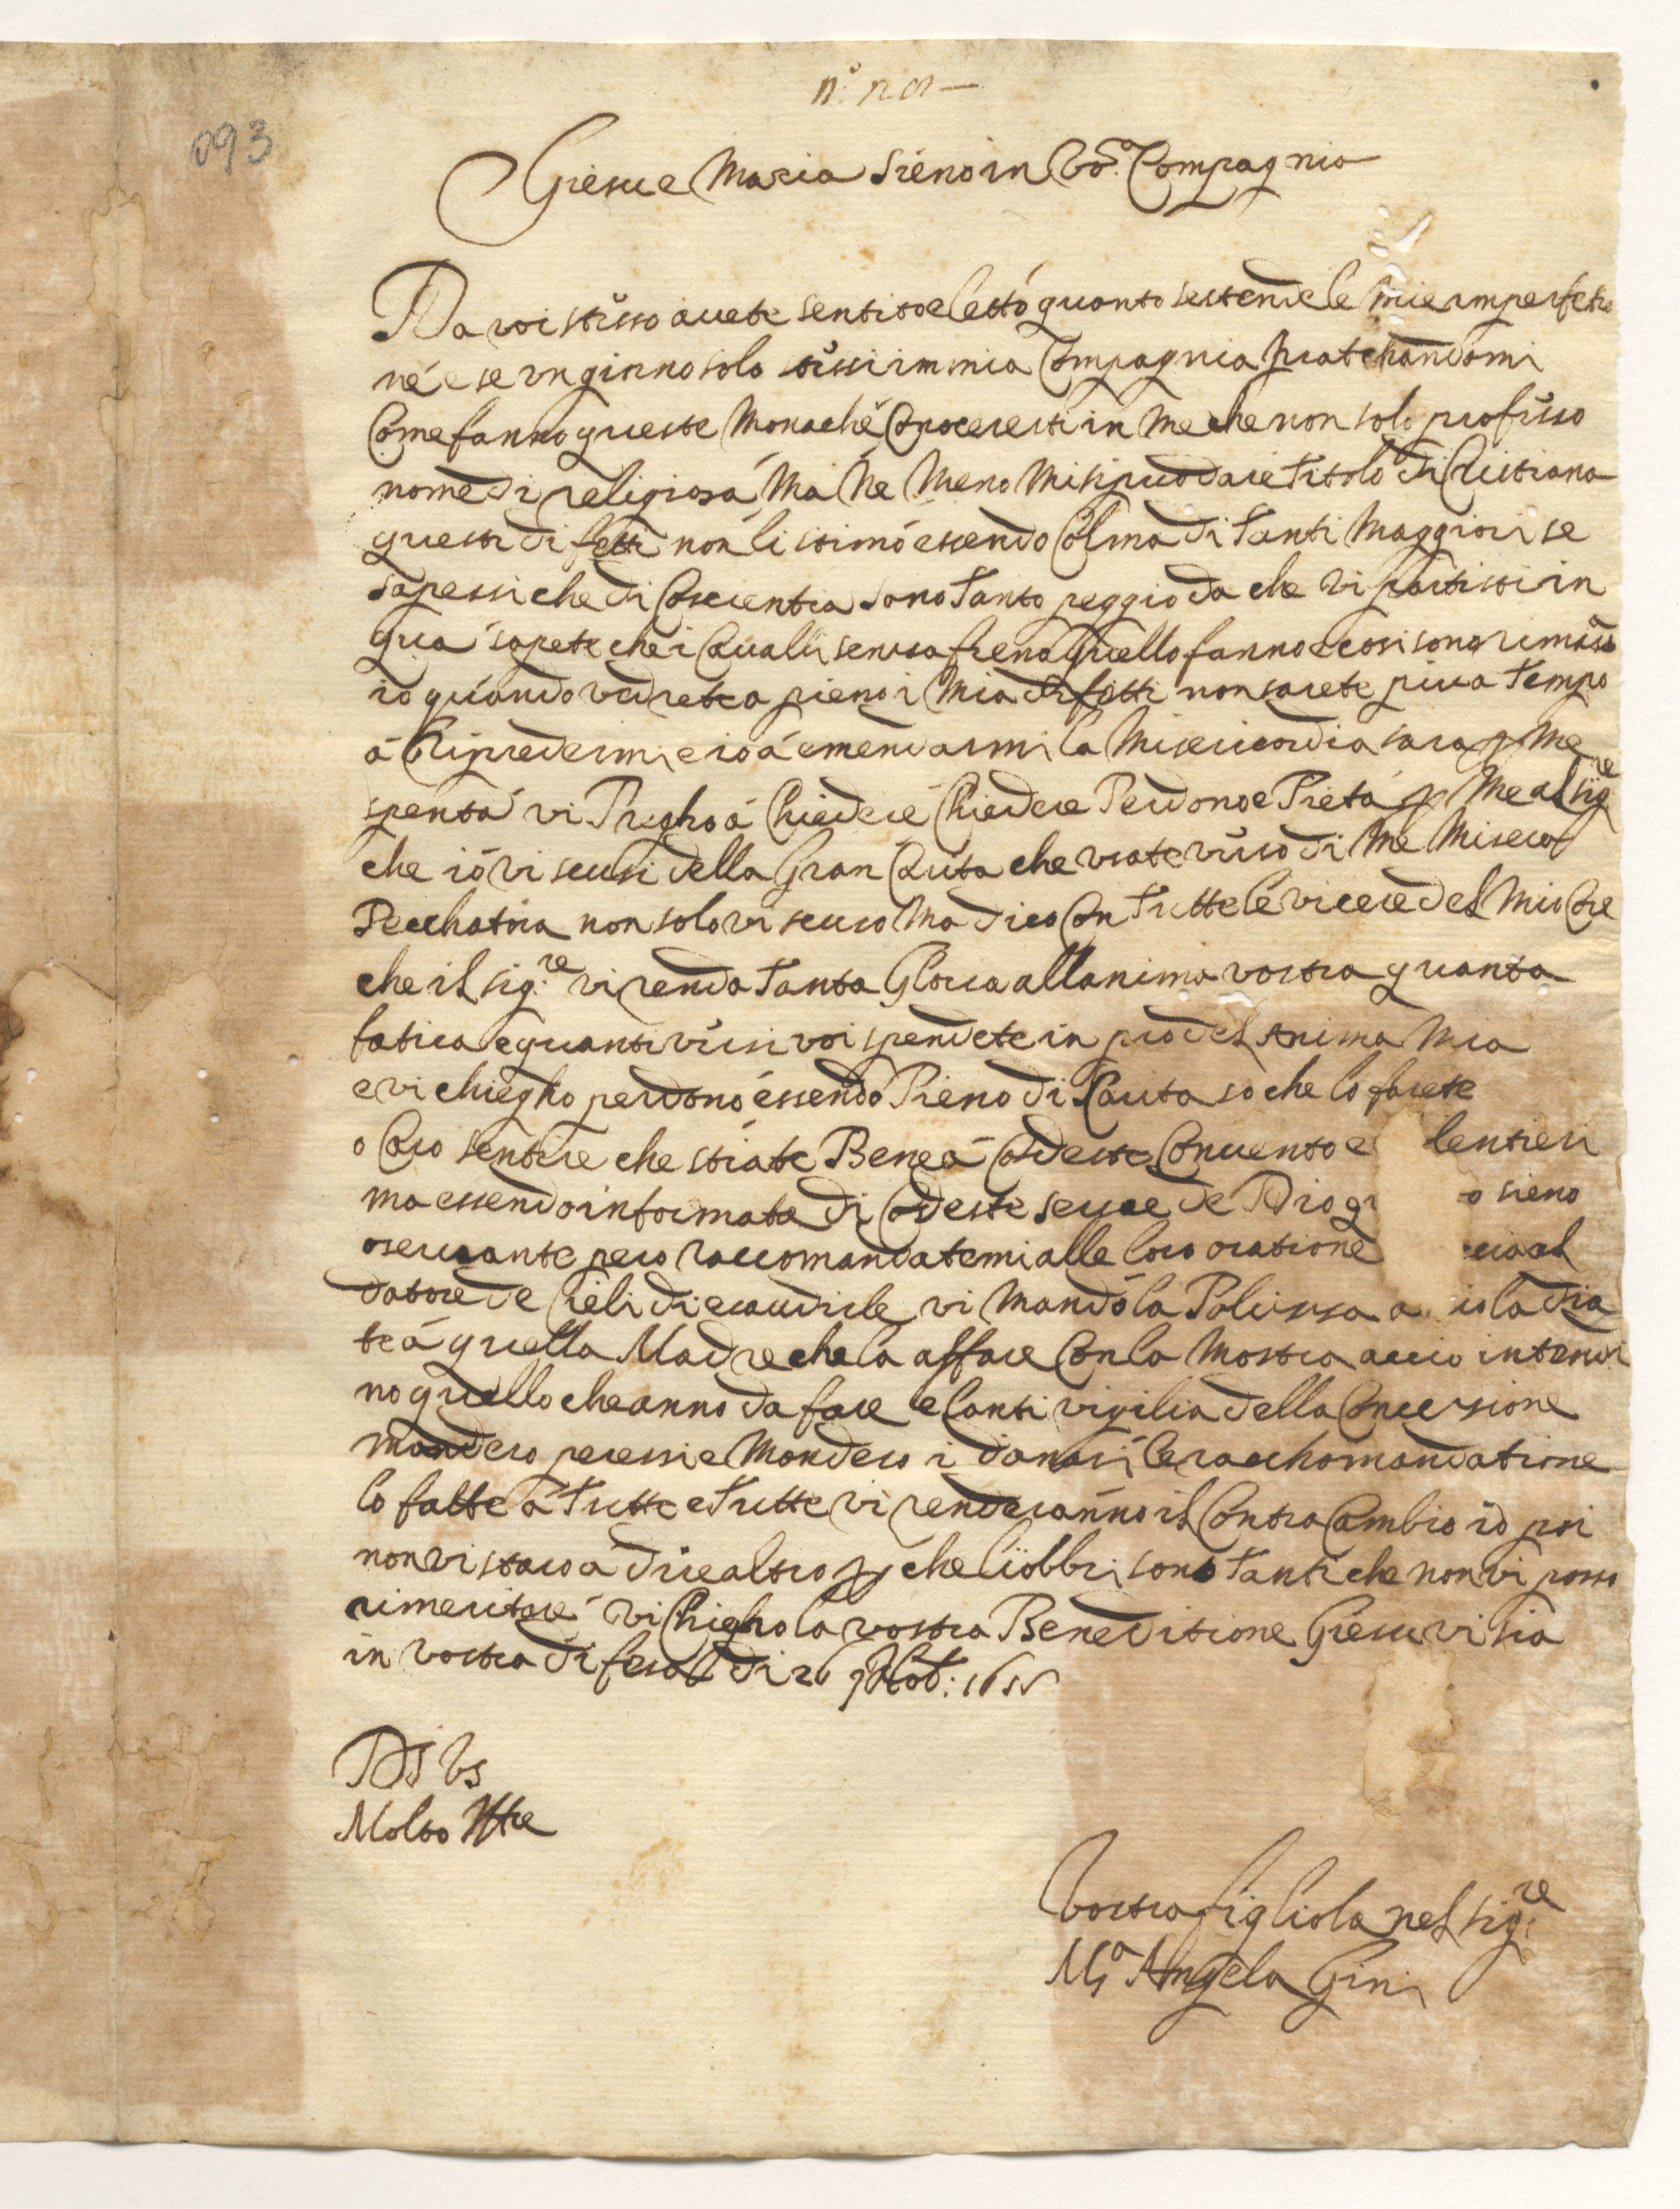 093
Giesu e Maria sieno in Vo.a Compagnia
Da voi stisso avete sentito e letto quanto sestende le mie imperfetio
ne e se un giorno solo stissi in mia Compagnia pratichandomi
Come fanno queste Monache Conoceresti in Me che non solo profisso
nome di religiosa Ma Ne Meno Mi si puo dare Titolo di Cristiana
questi difetti non li stimo essendo Colma di Tanti Maggiori se
sapessi che di Coscientia sono Tanto peggio da che vi partisti in
qua sapete che i Cavalli senza freno quello fanno e cosi sono rimasso
io quando vedrete a pieno i Mia difetti non sarete piu a Tempo
a Ripredermi e io a emendarmi la Misericordia sara p Me
spenta vi Pregho a Chiedere Chiedere Perdono e Pieta p Me al Sig.re
che io vi scusi della Gran Carita che usate verso di Me Misera
Pecchatrica non solo vi scuso Ma dico Con Tutte le vicere del Mio Core
che il sig.re vi renda Tanta Gloria allanima vostra quanta
fatica e quanti visi voi spendete in pro del Anima Mia
e vi chiegho perdono essendo Pieno di Carita so che lo farete
o Caro sentire che stiate Bene a Codeste Convento e lentieri
ma essendo informata di Codeste serve de Dio gr o sieno
oservante pero raccomandatemi alle loro oratione
datore de Cieli di esaudirle vi Mando la Polissa a la dia
te a quella Madre che la affare Con la Mostra accio intendi
no quello che anno da fare e lanti vigilia della Concersione
mandero peressi e Mandero i danari le racchomandatione
lo fatte a Tutte e Tutte vi renderanno il Contra Cambio io poi
non vi staro a dire altro p che li obbri sono Tanti che non vi posso
rimeritare vi Chiegho la vostra Beneditione Giesu vi sia
in vostra difesa di 26 9bb:
DS Vs
Molto Ill.re
Vostra figliola nel sig.re
M.a Angela Gini